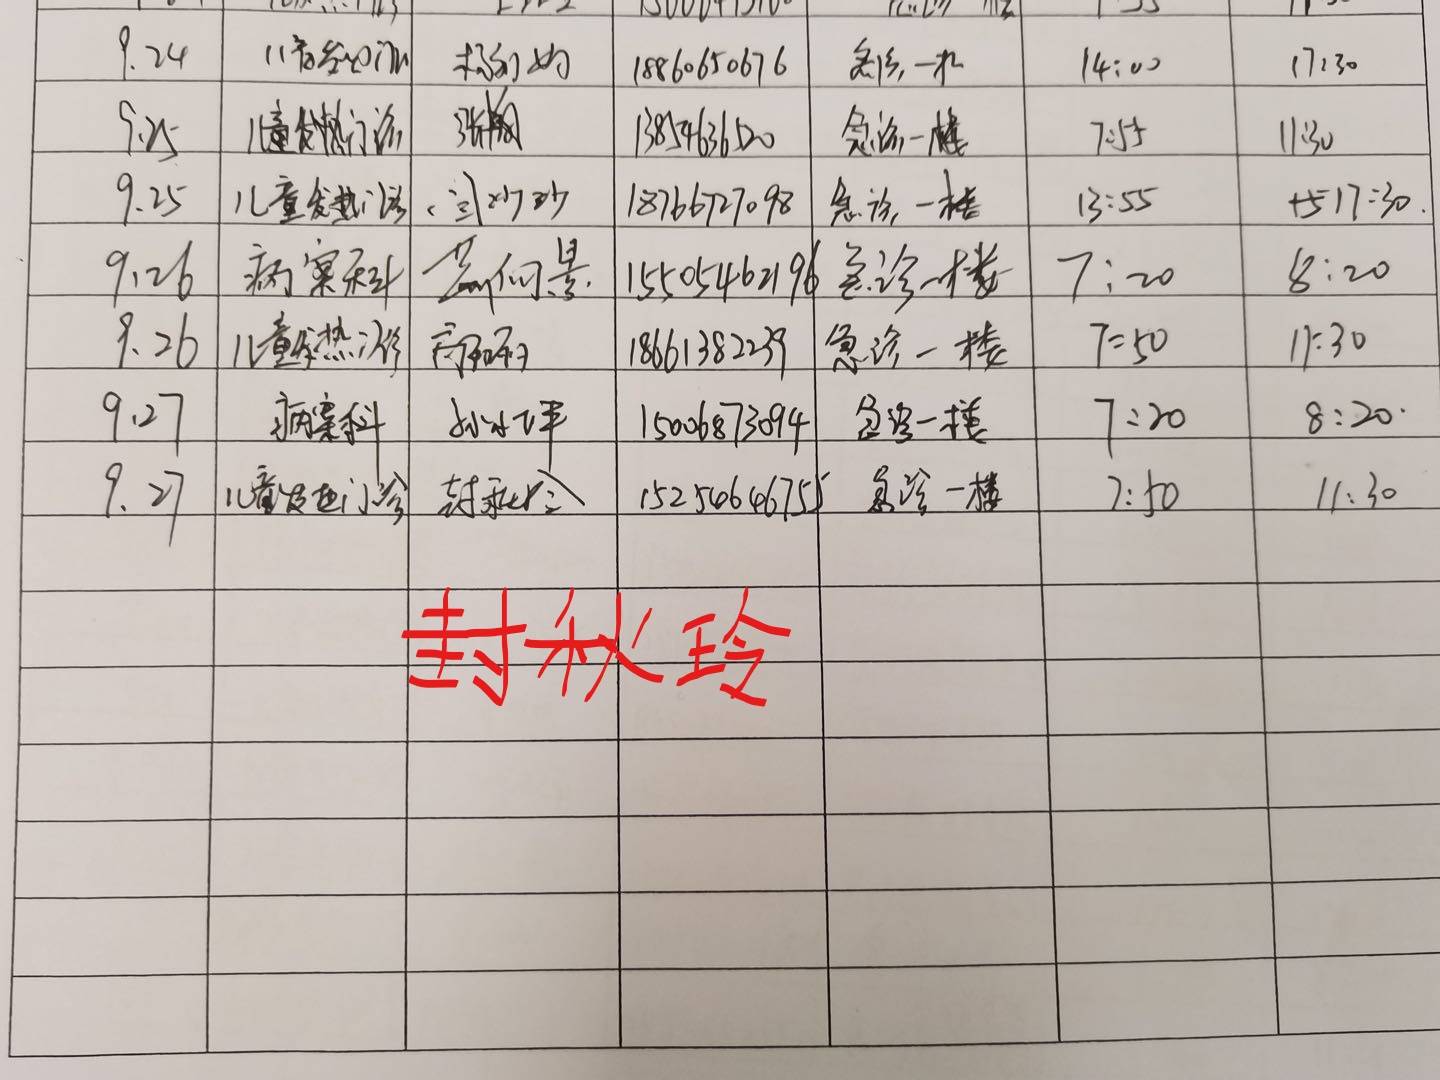 9.24 14:00 17:30
9.25 儿童发热门诊 张翔 13854636520 急诊一楼 7:55 11:30
9.25 儿童发热门诊 闫妙妙 18766727098 急诊一楼 13:55 17:30
9.26 病案科 15505462196 急诊一楼 7:20 8:20
9.26 儿童发热门诊 18661382239 急诊一楼 7:50 11:30
9.27 病案科 15006873094 急诊一楼 7:20 8:20
9.27 儿童发热门诊 封秋玲 15254646755 急诊一楼 7:50 11:30
封秋玲